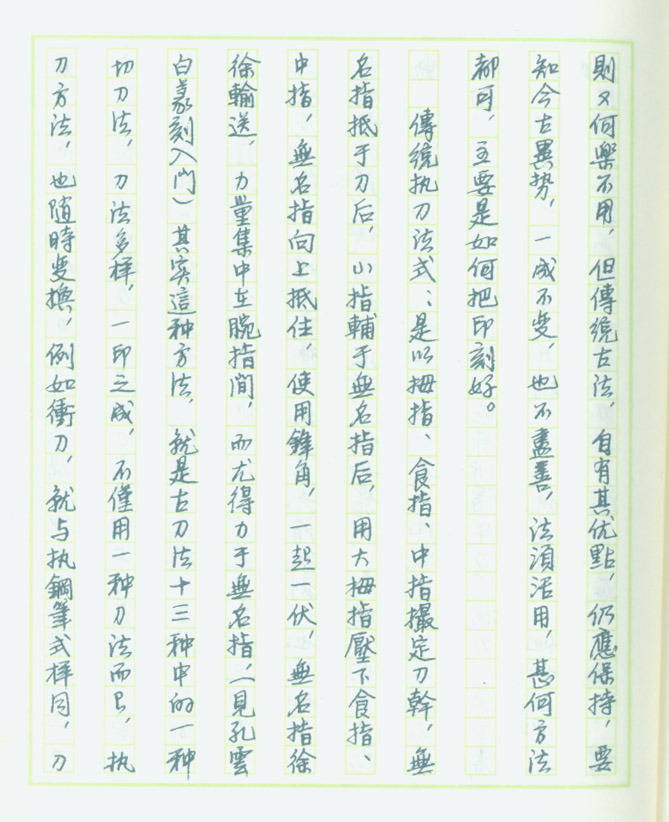 則又何樂不用，但傳統古法，自有其优點，仍應保持，要
知今古異勢，一成不变，也不盡善，法須活用，甚何方法
都可，主要是如何把印刻好。
傳統执刀法式：是以拇指、食指、中指撮定刀幹，無
名指抵于刀后，小指輔于無名指后，用大拇指壓下食指、
中指，無名指向上抵住，使用鋒角，一起一伏，無名指徐
徐輸送，力量集中在腕指間，而尤得力于無名指，（見孔雲
白篆刻入門）其实這种方法，就是古刀法十三种中的一种
切刀法，刀法多样，一印之成，不僅用一种刀法而已，执
刀方法，也随時変換，例如衝刀，就与执鋼筆式样同，刀